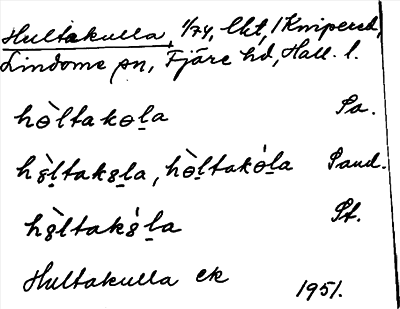 Hultakulla, 1/74, lkt, / Knipered,
Lindome sn, Fjäre hd, Hall. l.
hɵ̀ltakɵḻa Pa.
hȣ̀ḻtakȣḻa, hɵ̀ḻtakɵ́ḻa Sand.
hȣ̀ltakȣ́ḻa St.
Hultakulla ek 1951.